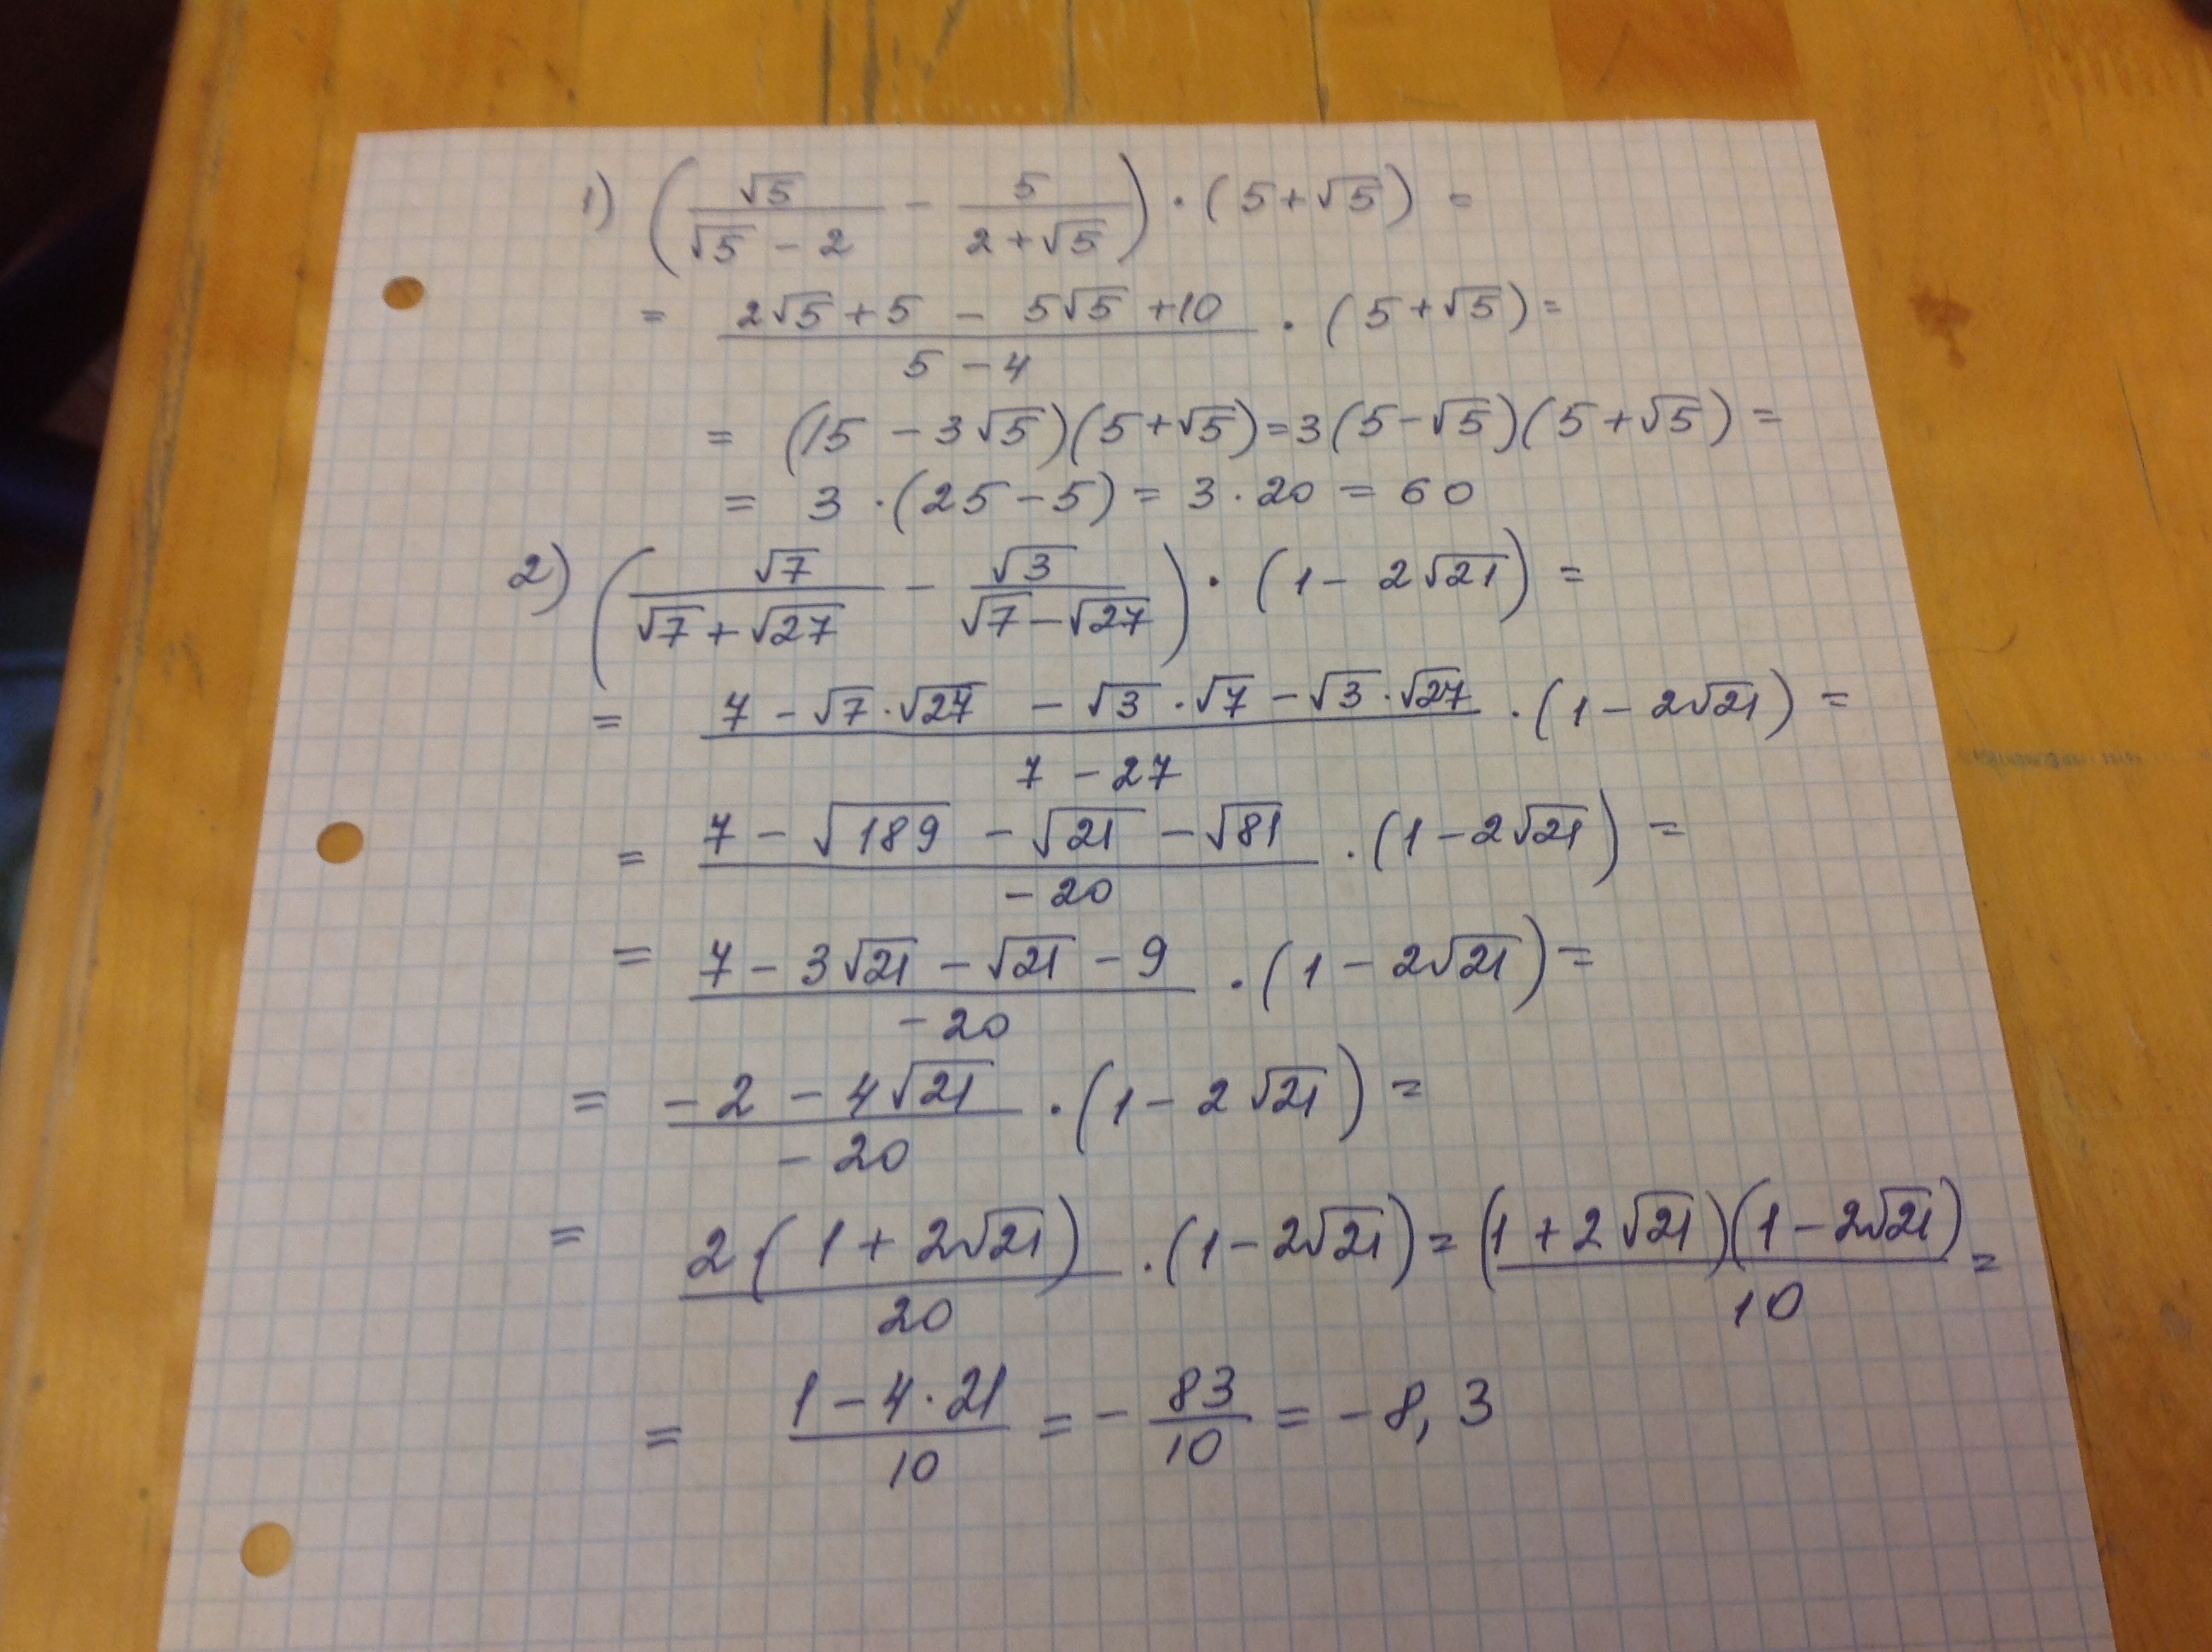 1) (√5/(√5 - 2) - 5/(2 + √5)) · (5 + √5) =
= (2√5 + 5 - 5√5 + 10)/(5 - 4) · (5 + √5) =
= (15 - 3√5)(5 + √5) = 3(5 - √5)(5 + √5) =
= 3 · (25 - 5) = 3 · 20 = 60
2) (√7/(√7 + √27) - √3/(√7 - √27)) · (1 - 2√21) =
= (7 - √7 · √27 - √3 · √7 - √3 · √27)/(7 - 27) · (1 - 2√21) =
= (7 - √189 - √21 - √81)/(-20) · (1 - 2√21) =
= (7 - 3√21 - √21 - 9)/(-20) · (1 - 2√21) =
= (-2 - 4√21)/(-20) · (1 - 2√21) =
= 2(1 + 2√21)/20 · (1 - 2√21) = (1 + 2√21)(1 - 2√21)/10 =
= (1 - 4 · 21)/10 = - 83/10 = - 8,3